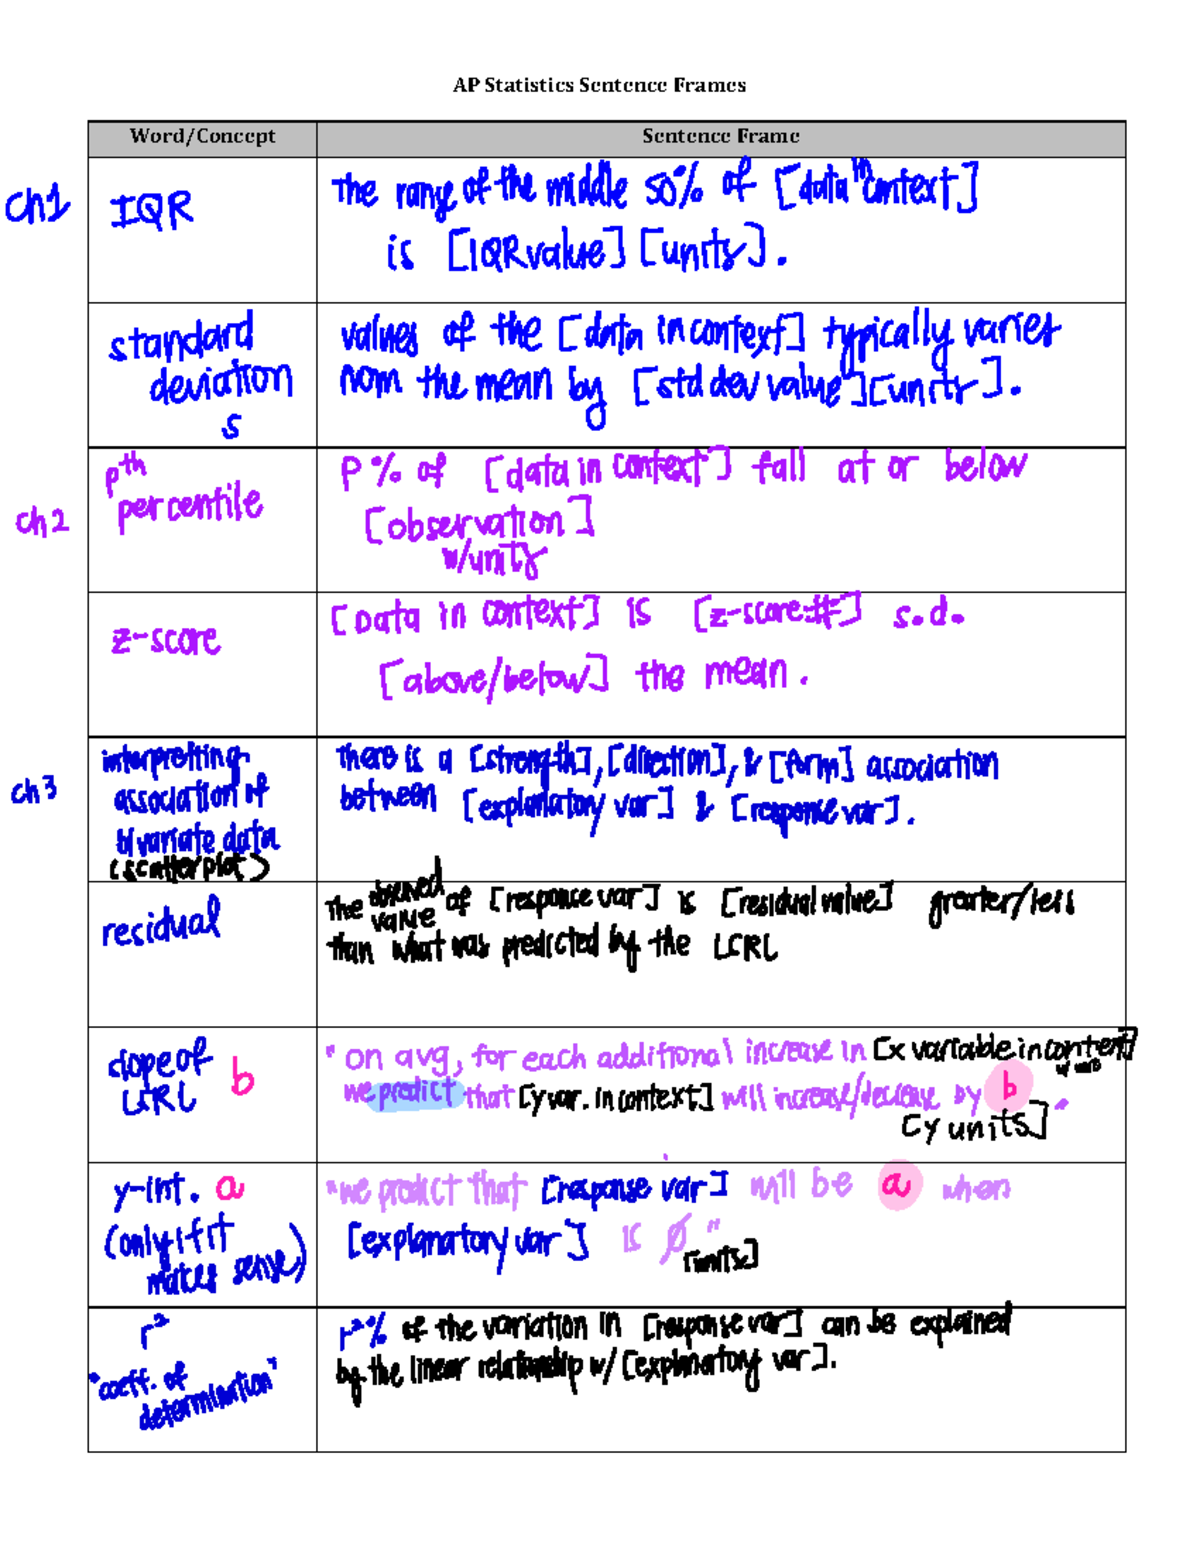 AP Statistics Sentence Frames
Word/Concept Sentence Frame
Ch1
IQR
The range of the middle 50% of [data in context]
is [IQR value] [units].
standard
deviation
s
values of the [data in context] typically varies
from the mean by [std dev value] [units].
ch2
pth
percentile
P% of [data in context] fall at or below
[observation]
w/units
z-score
[Data in context] is [z-score #] s.d.
[above/below] the mean.
ch3
interpretting
association of
bivariate data
(scatterplot)
There is a [strength], [direction], & [form] association
between [explanatory var] & [response var].
residual
The observed value of [response var] is [residual value] greater/less
than what was predicted by the LSRL
slope of
LSRL b
"on avg, for each additional increase in [x variable in context]
w/ units
we predict that [y var. in context] will increase/decrease by b."
[y units]
y-int. a
(only if it
makes sense)
"we predict that [response var] will be a when
[explanatory var] is 0"
[units]
r²
"coeff. of
determination"
r²% of the variation in [response var] can be explained
by the linear relationship w/ [explanatory var].